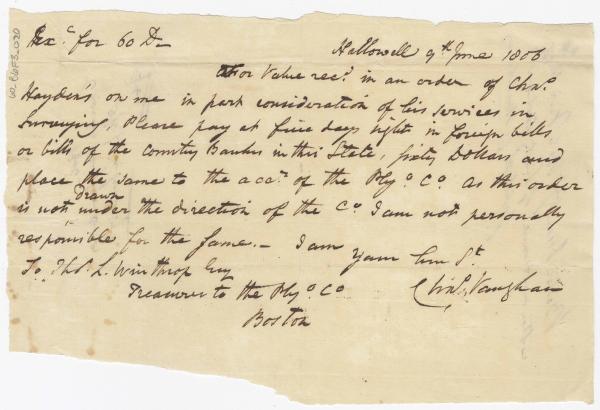 Exc. for 60 D
Hallowell 9th June 1806
For Value recd. in an order of Chas.
Hayden's on me in part consideration of his services in
Surveying, Please pay at five days sight in foreign bills
or bills of the Country Banks in this State, sixty Dollars and
place the same to the acct. of the Plyo. Co. As this order
is not drawn under the direction of the Co. I am not personally
responsible for the same.- I am
your hum St.
To Thos. L. Winthrop Esq
Chas. Vaughan
Treasurer to the Plyo. Co
Boston